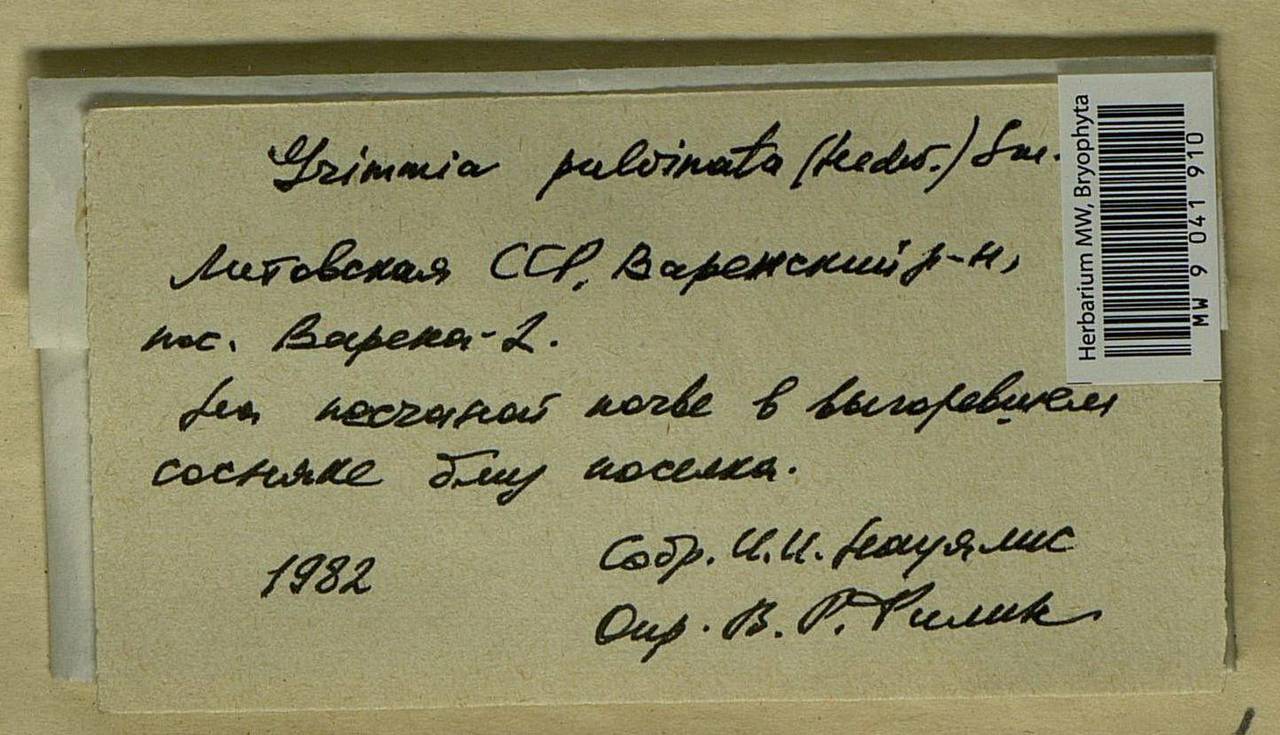 Grimmia pulvinata (Hedw.) Sm.
Литовская ССР, Варенский р-н,
пос. Варена-2.
На песчаной почве в выгоревшем
сосняке близ поселка.
1982
Собр. И.И. Науялис
Опр. В. Р. Филин
Herbarium MW, Bryophyta
MW 9 041 910